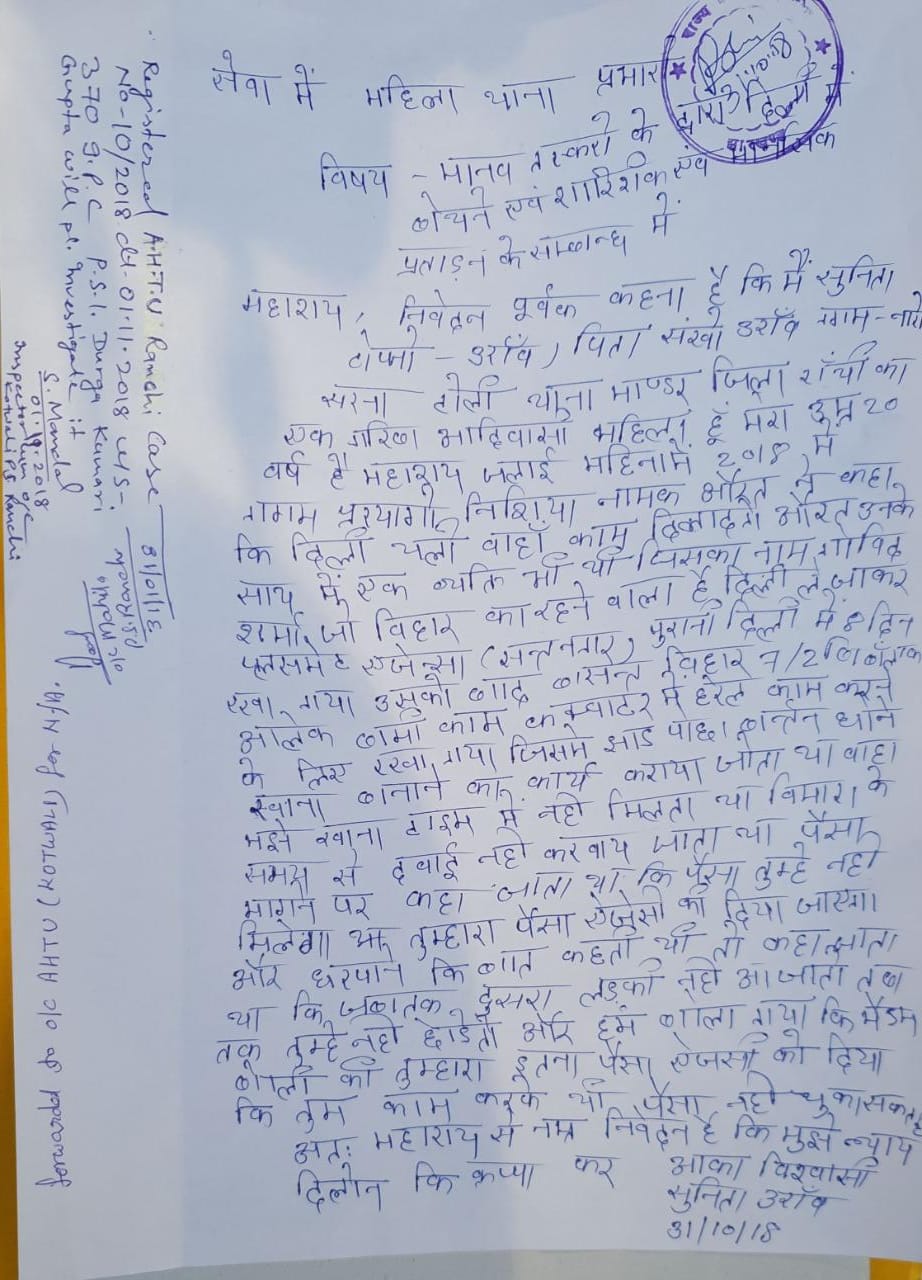 सेवा में महिला थाना प्रभारी
विषय - मानव तस्करो के द्वारा दिल्ली में
बेचने एवं शारिरिक एवं मानसिक
प्रताड़न के सम्बन्ध में
महाशय, निवेदन पूर्वक कहना है कि मैं सुनिता
टोप्नो - उराँव, पिता संखो उराँव ग्राम -
सरना टोली थाना माण्डर जिला राँची का
एक गरिब आदिवासी महिला हूँ मेरा उम्र 20
वर्ष है महाशय जुलाई महिना में 2018 में
ग्राम निशिया नामक औरत ने कहा
कि दिल्ली चलो वाहाँ काम दिलादेगें औरत उनके
साथ में एक व्यक्ति भी थी जिसका नाम गोविंद
शर्मा, जो विहार का रहने वाला है दिल्ली ले जाकर
प्लेसमेंट एजेन्सी (सन्तनगर) पुरानी दिल्ली में 8 दिन
रखा गया उसके बाद बसन्त विहार 7/2
के लिए रखा गया जिसमे झाड़ु पोछा बर्तन धोने
खाना बनाने का कार्य कराया जाता था वाहा
मुझे खाना टाइम में नहीं मिलता था विमारी के
समय से दवाई नहीं करवाय जाता था पैसा
मांगने पर कहा जाता था कि पैसा तुम्हे नही
मिलेगा तुम्हारा पैसा एजेंसी को दिया जाएगा
और घर कि बात कहती थी तो कहा जाता
था कि जबतक दुसरा लड़की नही आ जाती तब
तक तुम्हे नही छोडेगें और हमे बोला गया कि मैडम
बोली की तुम्हारा इतना पैसा एजेंसी को दिया
कि तुम काम करके भी पैसा नही चुका सकते है
अतः महाशय से नम्र निवेदन है कि मुझे न्याय
दिलाने कि कृपा कर
आका विश्वासी
सुनिता उराँव
31/10/18
Registered A.H.T.U. Ranchi Case
No-10/2018 dt-01.11.2018 u/s-
370 I.P.C P.S.I. Durga Kumari
Gupta will pl. investigate it
S. Mandal
01.11.2018
Inspector cum o/c
Kotwali P.S. Ranchi
forwarded to o/c AHTU (KOTWALI) for N/A.